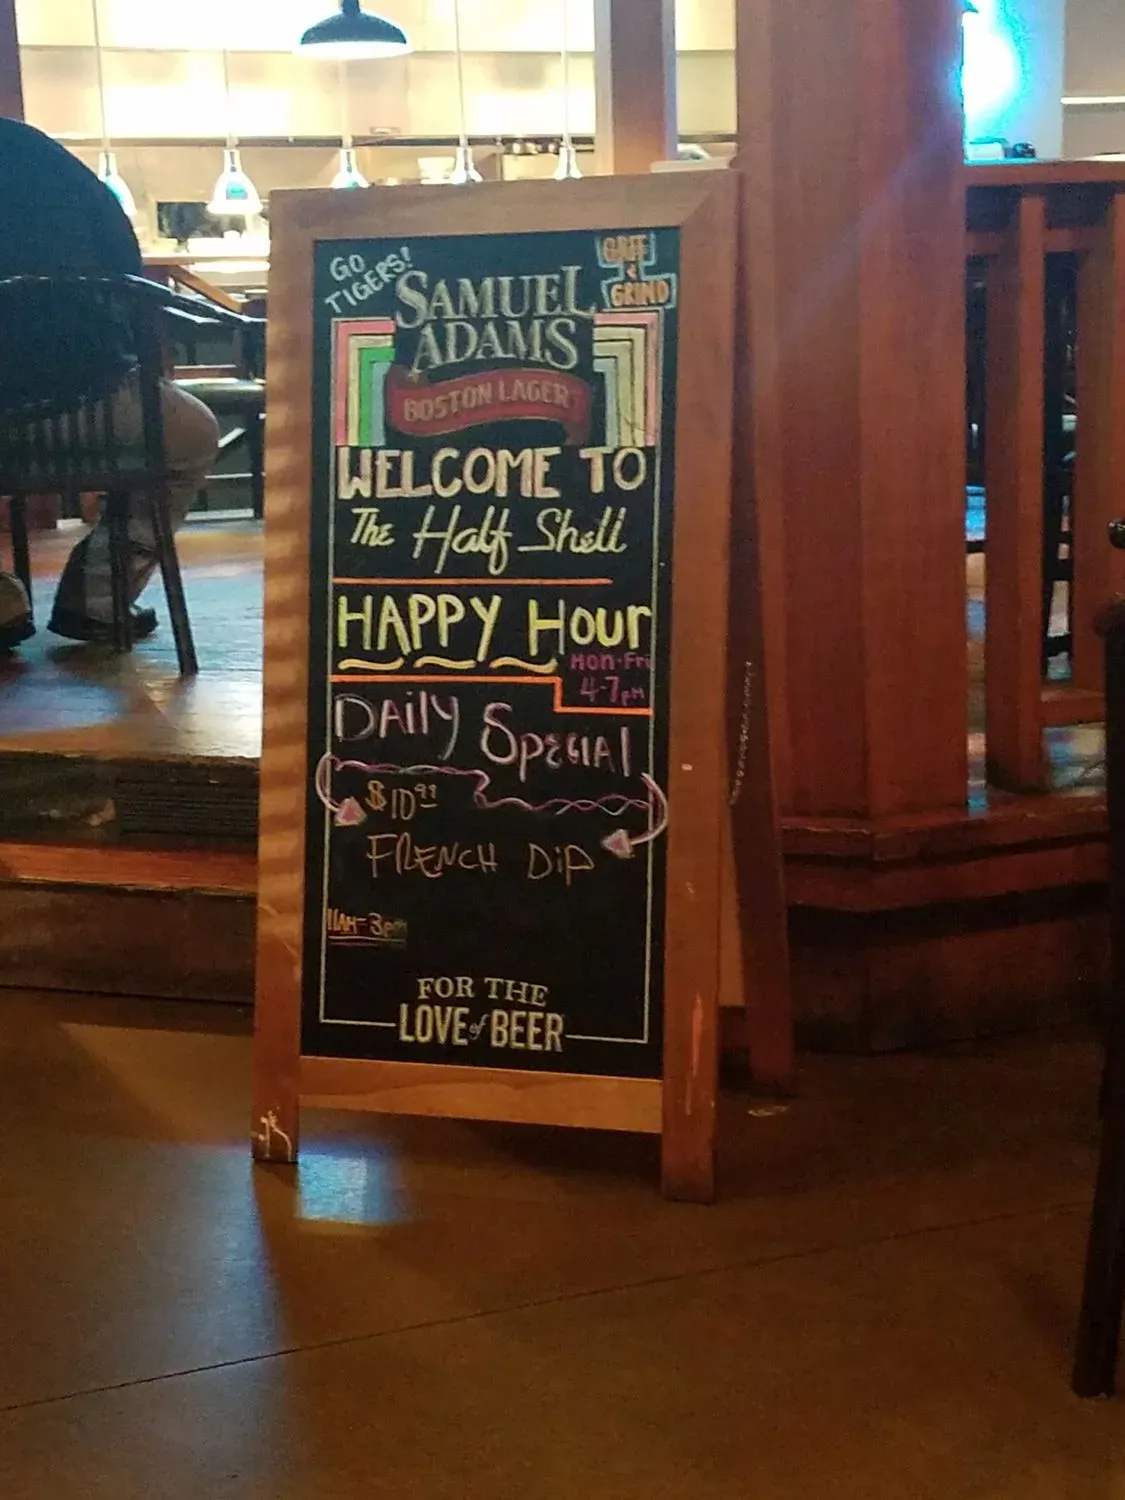 GO
TIGERS!
GRIT
&
GRIND
SAMUEL
ADAMS
BOSTON LAGER
WELCOME TO
The Half Shell
HAPPY Hour
MON-Fri
4-7pm
DAily Special
$10.99
FRENCH DiP
11AM-3pm
FOR THE
LOVE of BEER